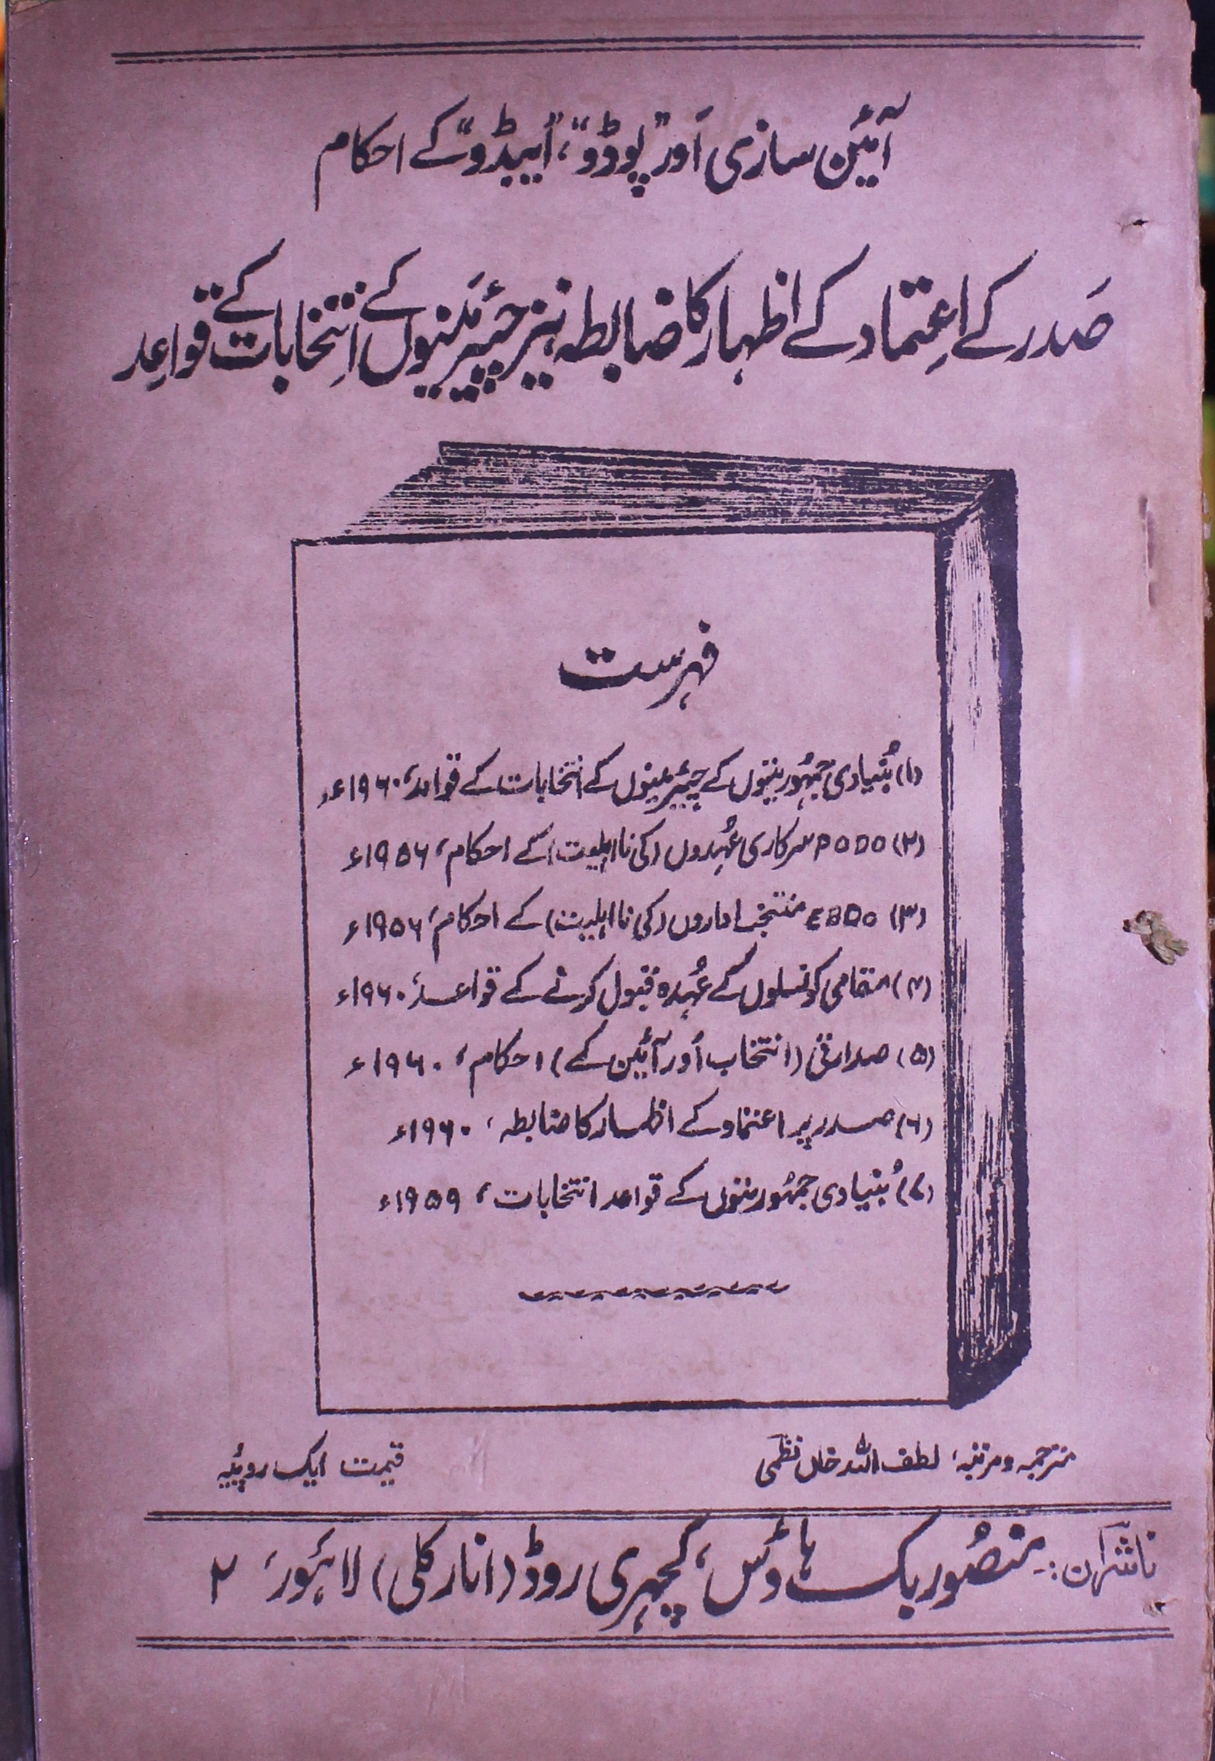 آئین سازی اَور ”پوڈو“، ”اَیبڈو“ کے احکام
صَدر کے اِعتماد کے اظہار کا ضابطہ نیز چیئرمَینوں کے اِنتخابات کے قواعِد
فہرست
(۱) بُنیادی جمہُوریتوں کے چیئرمینوں کے انتخابات کے قواعد، ۱۹۶۰ء،
(۲) PODO سرکاری عُہدوں (کی نااہلیت) کے احکام، ۱۹۵۶ء
(۳) EBDO منتخب اداروں (کی نااہلیت) کے احکام، ۱۹۵۶ء
(۴) مقامی کونسلوں کے عُہدہ قبول کرنے کے قواعد، ۱۹۶۰ء
(۵) صدارتی (انتخاب اَور آئین کے) احکام، ۱۹۶۰ء
(۶) صدر پر اعتماد کے اظہار کا ضابطہ، ۱۹۶۰ء
(۷) بُنیادی جمہُوریتوں کے قواعد انتخابات، ۱۹۵۹ء
مترجمہ و مرتبہ، لطف اللہ خاں نظمی
قیمت ایک روپیہ
ناشران:۔ منصُور بک ہاؤس، کچہری روڈ (انارکلی) لاہور، ۲